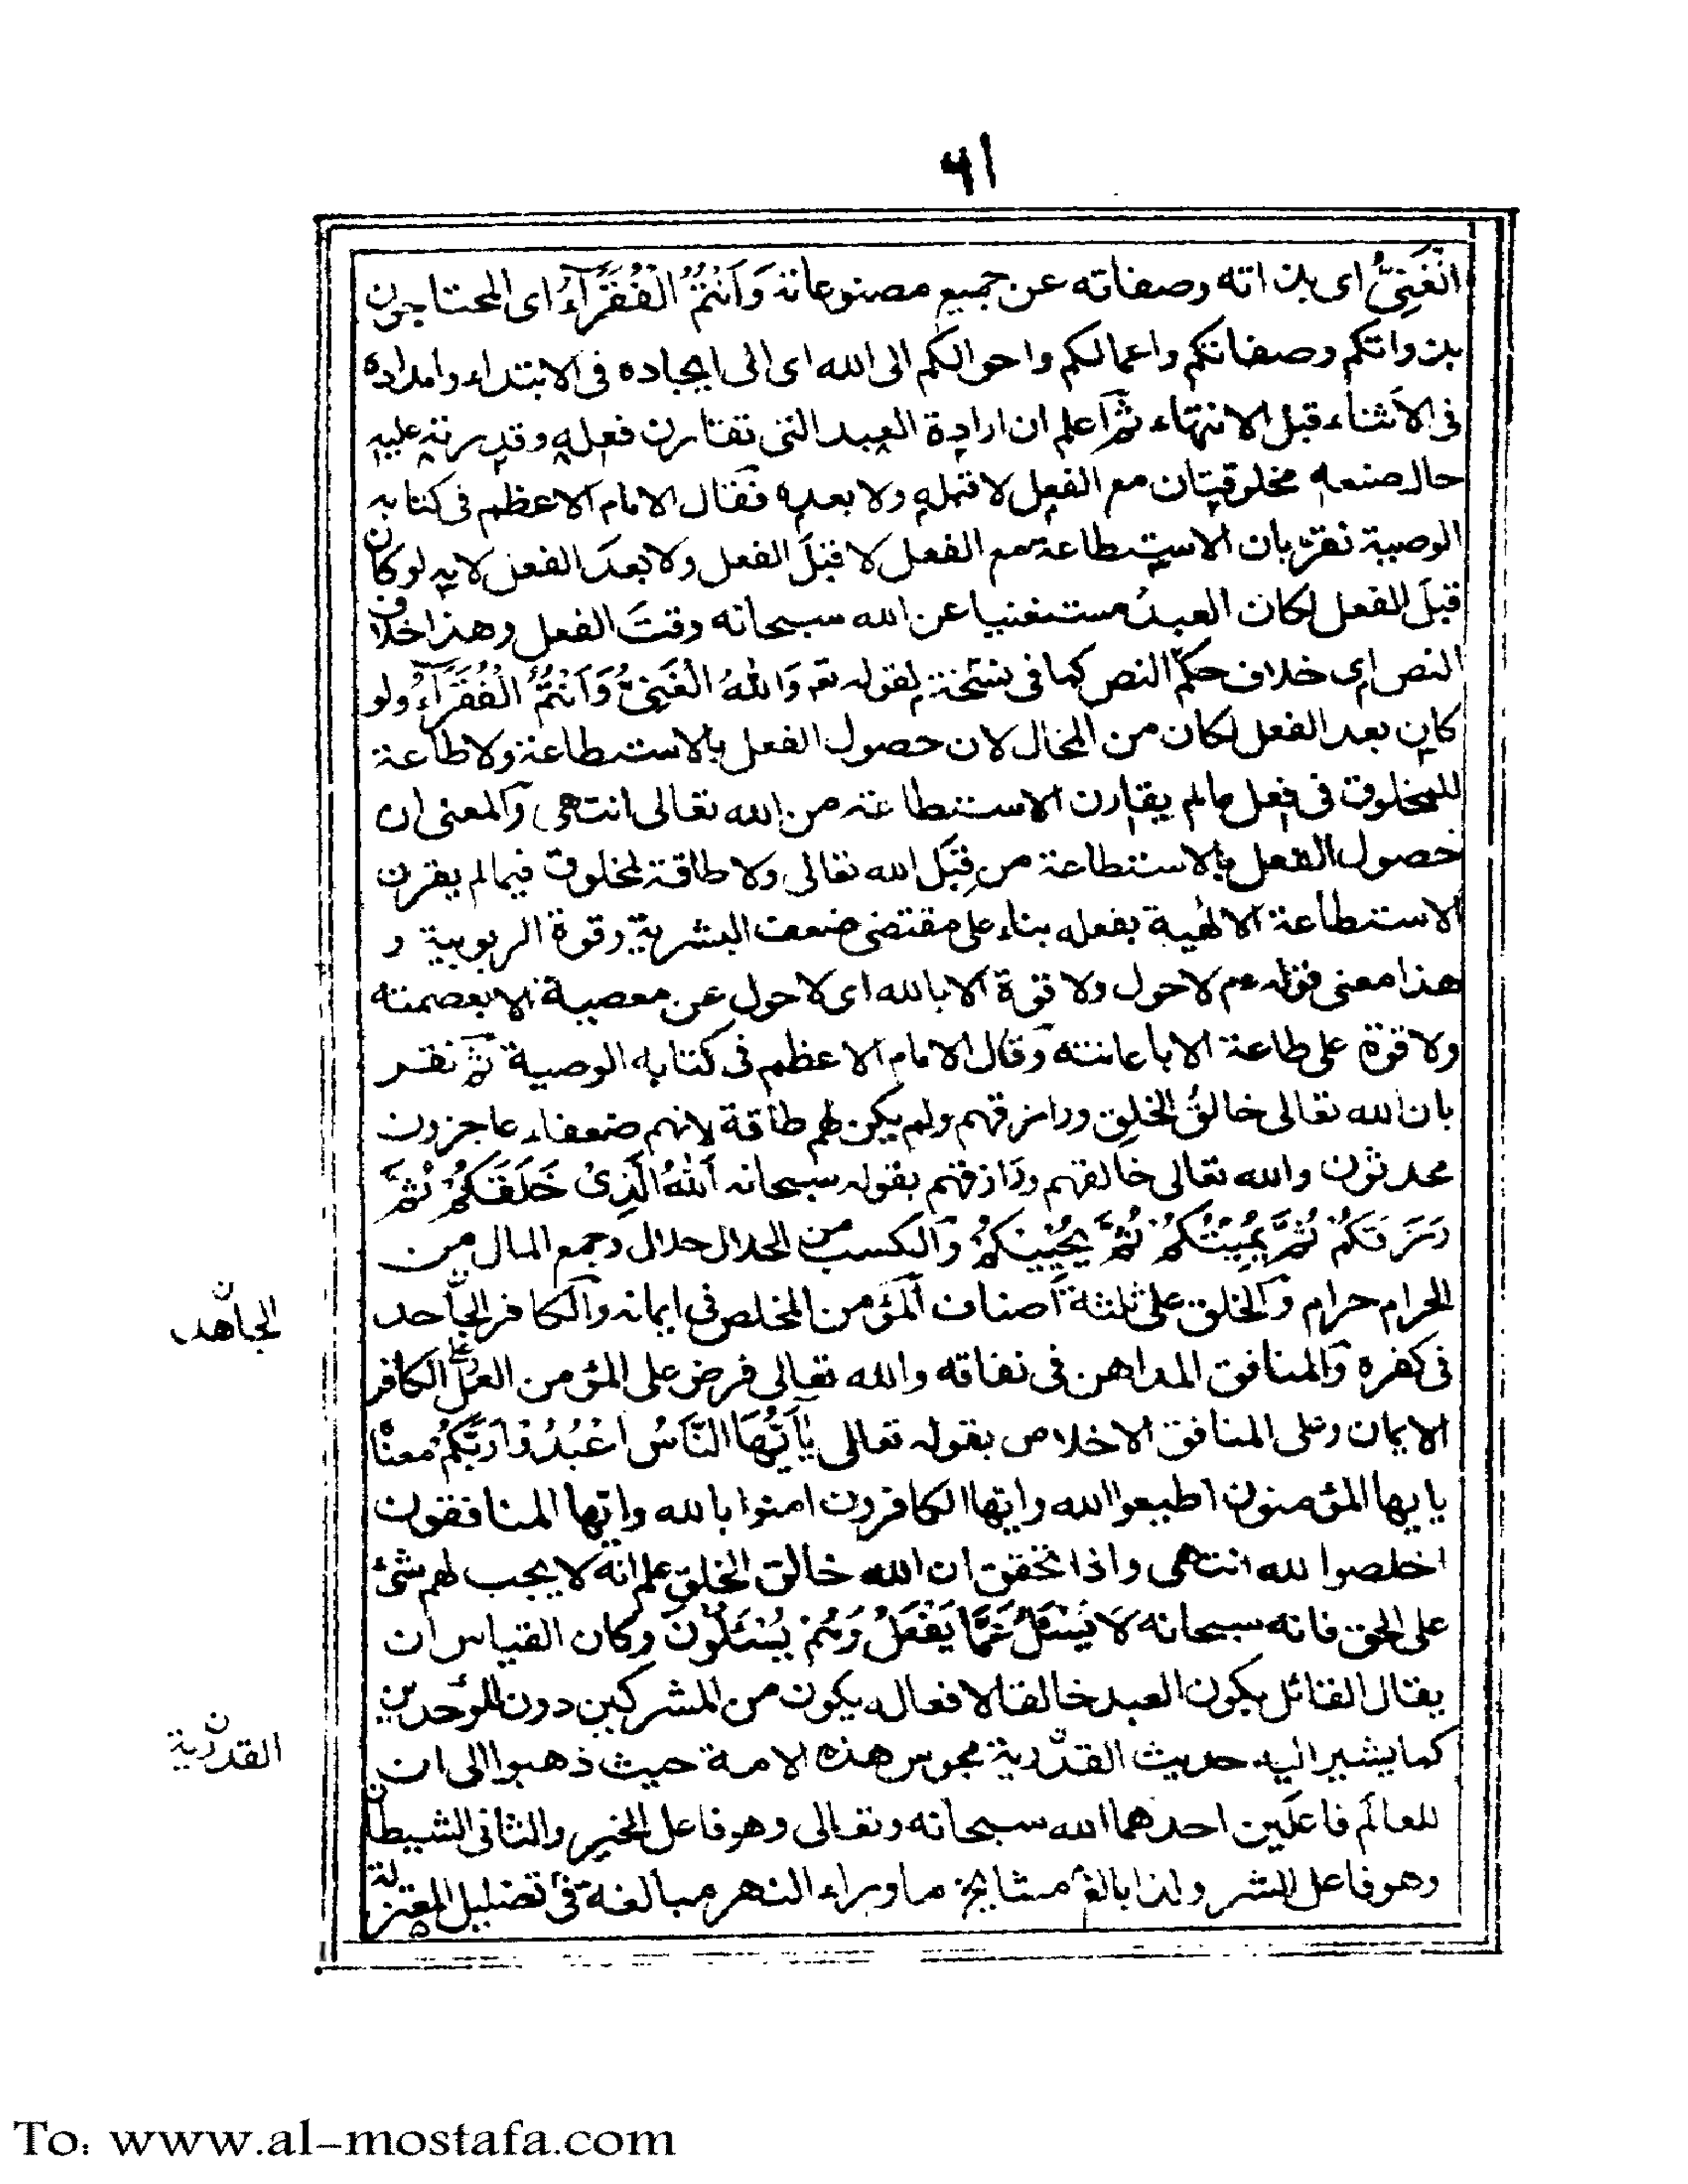 ٦١
الْغَنِيُّ اى بذاته وصفاته عن جميع مصنوعاته وَاَنْتُمُ الْفُقَرَآءُ اى المحتاجون
بذواتكم وصفاتكم واعمالكم واحوالكم الى الله اى الى ايجاده فى الابتداء وامداده
فى الاثناء قبل الانتهاء ثم اعلم ان ارادة العبد التى تقارن فعله وقدرته عليه
حال صنعه مخلوقتان مع الفعل لا قبله ولا بعده فقال الامام الاعظم فى كتابه
الوصية نقرّ بان الاستطاعة مع الفعل لا قبلَ الفعل ولا بعدَ الفعل لانه لو كان
قبلَ الفعل لكان العبدُ مستغنيا عن الله سبحانه وقتَ الفعل وهذا خلاف
النص اى خلاف حكم النص كما فى نسخة لقوله تعـ وَاللهُ الْغَنِيُّ وَاَنْتُمُ الْفُقَرَآءُ ولو
كان بعد الفعل لكان من المحال لان حصول الفعل بالاستطاعة ولا طاعة
للمخلوق فى فعل مالم يقارن الاستطاعة من الله تعالى انتهى والمعنى ان
حصول الفعل بالاستطاعة من قِبَل الله تعالى ولا طاقة لمخلوق فيما لم يقرن
الاستطاعة الالهية بفعله بناء على مقتضى ضعف البشرية وقوة الربوبية و
هذا معنى قوله عم لاحول ولا قوة الا بالله اى لاحول عن معصية الا بعصمته
ولا قوة على طاعة الا باعانته وقال الامام الاعظم فى كتابه الوصية ثم نقر
بان الله تعالى خالقُ الخلق ورازقهم ولم يكن لهم طاقة لانهم ضعفاء عاجزون
محدثون والله تعالى خالقهم ورازقهم بقوله سبحانه اَللهُ الَّذِىْ خَلَقَكُمْ ثُمَّ
رَزَقَكُمْ ثُمَّ يُمِيْتُكُمْ ثُمَّ يُحْيِيْكُمْ والكسب من الحلال حلال وجمع المال من
الحرام حرام والخلق على ثلثة اصناف المؤمن المخلص فى ايمانه والكافر الجاحد
الجاهد ن
فى كفره والمنافق المداهن فى نفاقه والله تعالى فرض على المؤمن العمل على الكافر
الايمان وعلى المنافق الاخلاص بقوله تعالى يٰٓاَيُّهَا النَّاسُ اعْبُدُوْا رَبَّكُمْ معناه
يا يها المؤمنون اطيعوا الله وايها الكافرون امنوا بالله وايها المنافقون
اخلصوا لله انتهى واذا تحقق ان الله خالق الخلق علم انه لا يجب لهم شئ
على الحق فانه سبحانه لَا يُسْئَلُ عَمَّا يَفْعَلُ وَهُمْ يُسْئَلُوْنَ وكان القياس ان
يقال القائل بكون العبد خالقا لافعاله يكون من المشركين دون الموحدين
كما يشير اليه حديث القدّرية مجوس هذه الامة حيث ذهبوا الى ان
القدرية ن
للعالَم فاعلَين احدهما الله سبحانه وتعالى وهو فاعل الخير والثانى الشيطان
وهو فاعل الشر ولذا بالغ مشايخ ما وراء النهر مبالغة فى تضليل المعتزلة
To: www.al-mostafa.com